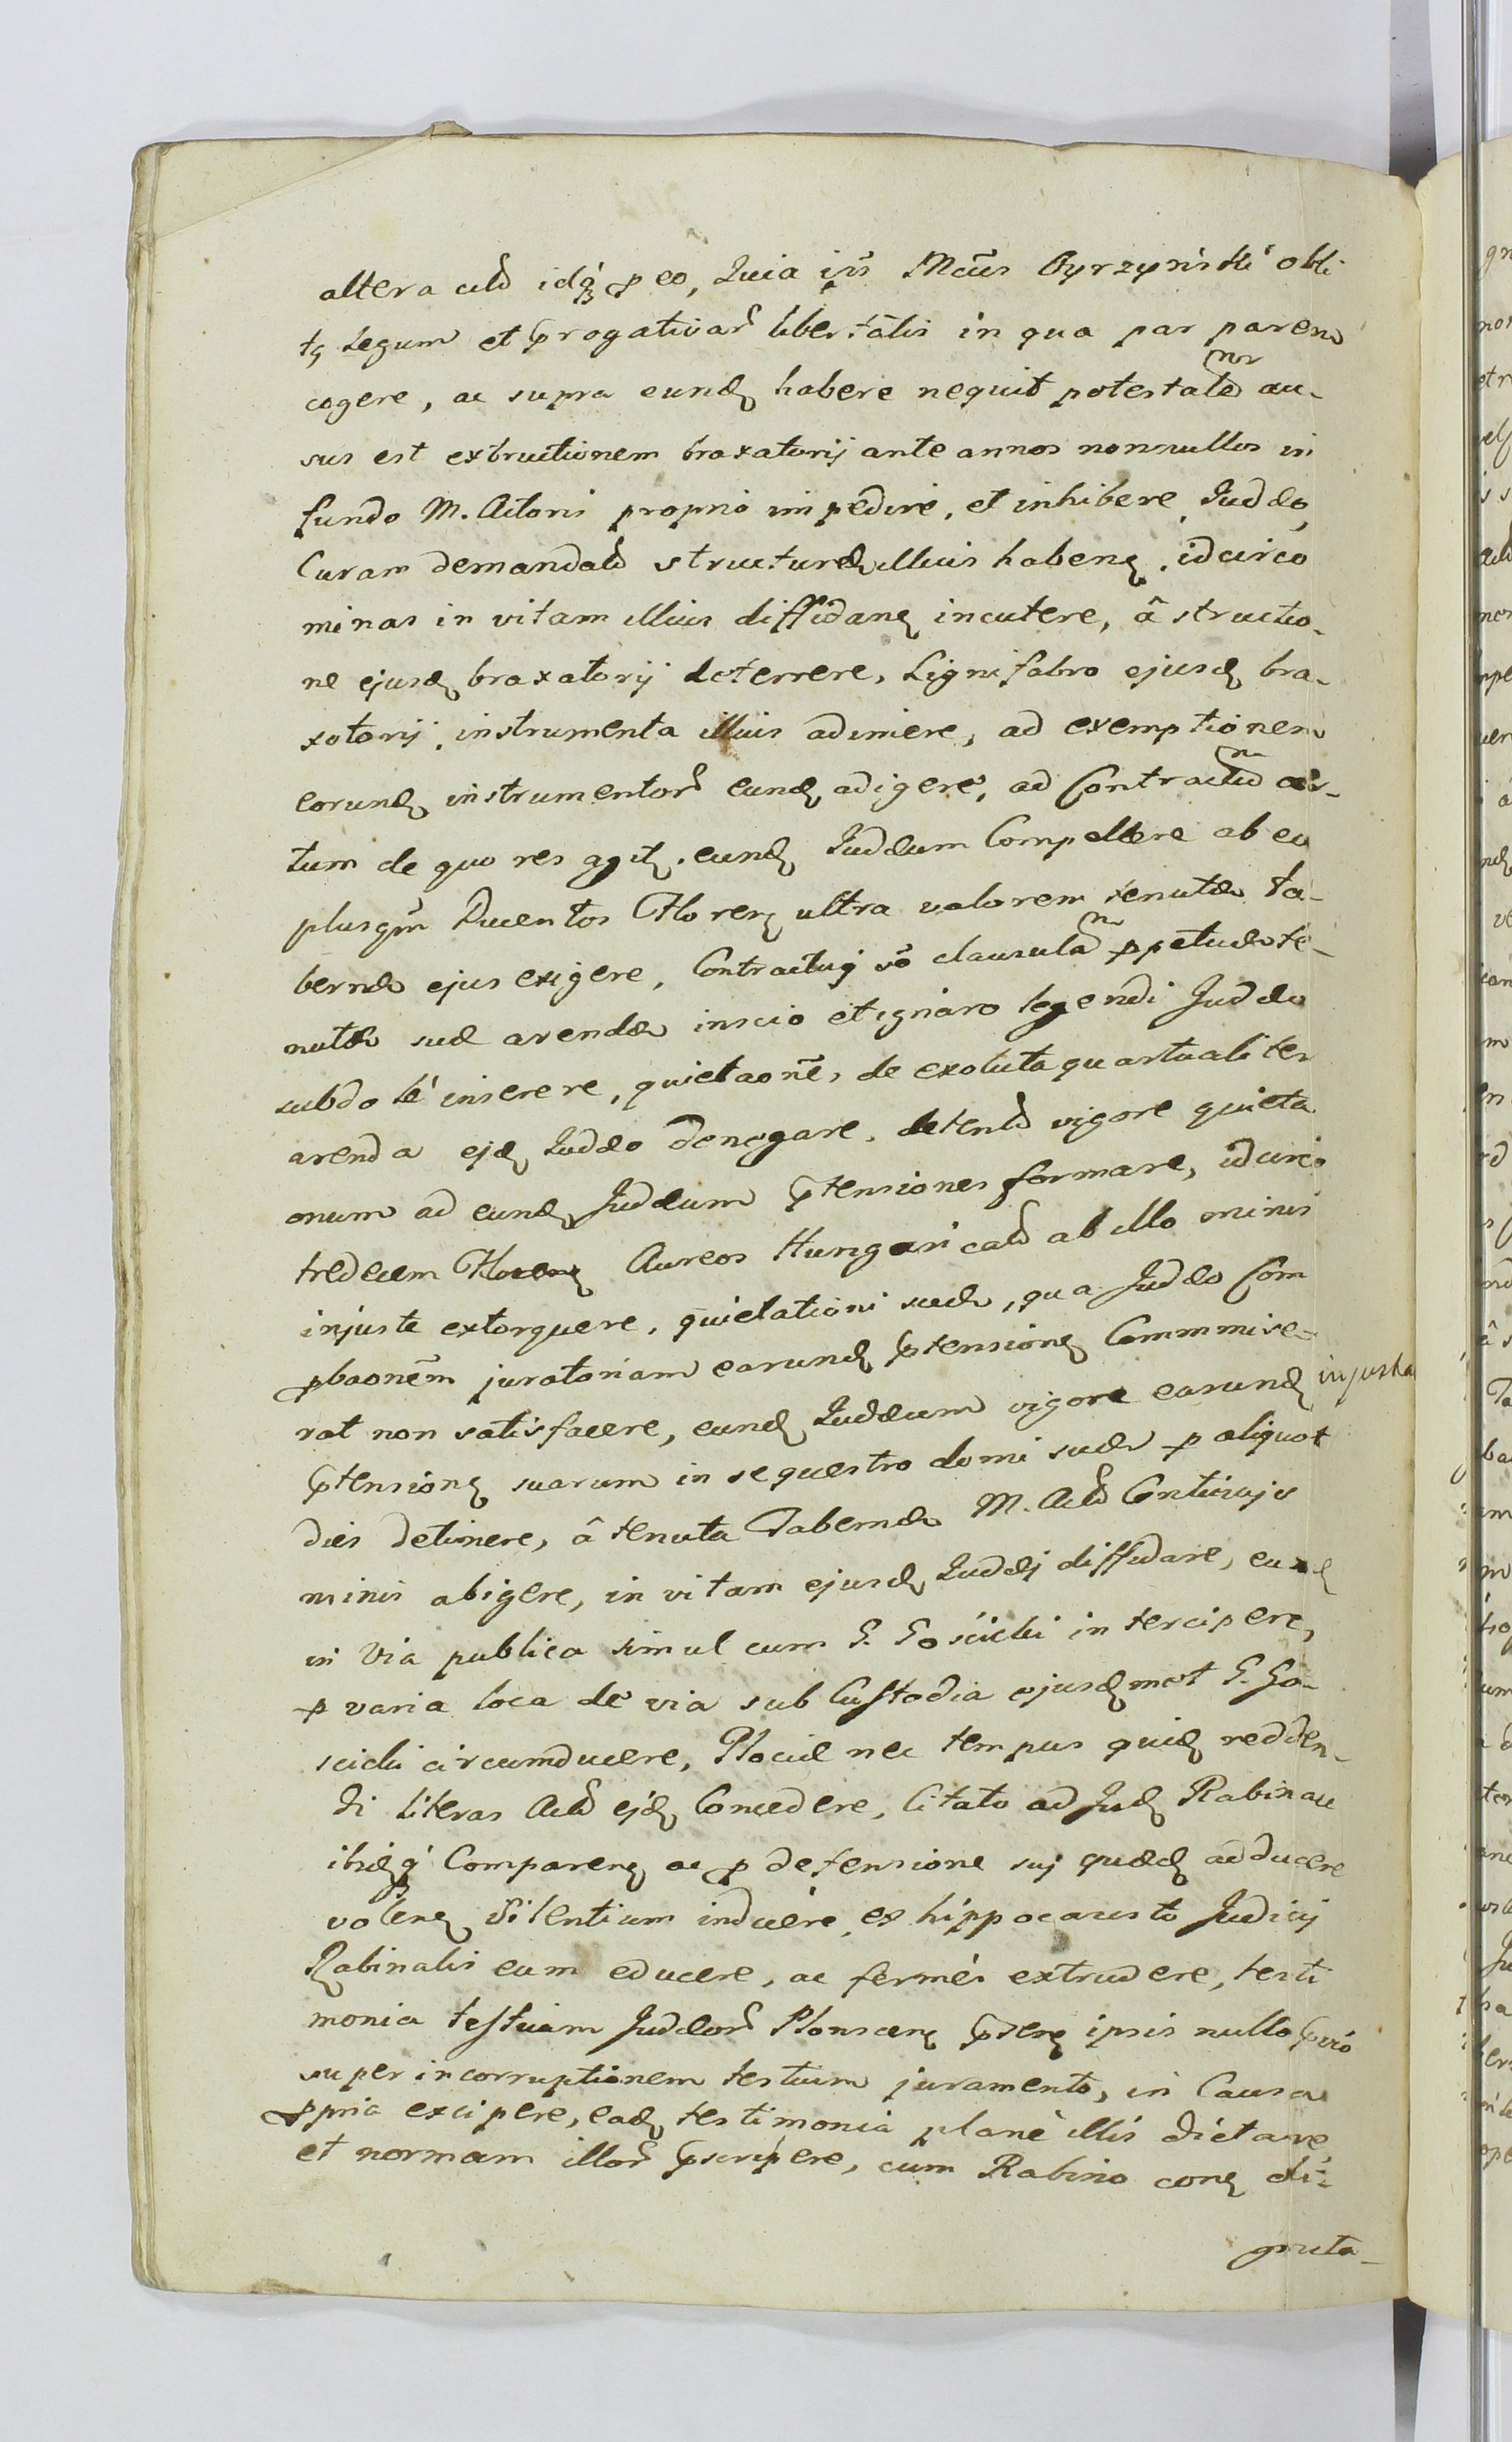 altera actũ idq́ꝫ ꝑ eo, Quia ip̃s Mcũs Gyrzyński obli
tꝯ Legum et P̃rogativarꝰ libertãtis in qua par parem
cogere, ac supra eundꝫ habere nequit potestatem au-
sus est extructionem braxatorij ante annos nonnullos in
fundo M. Actoris proprio impedire, et inhibere, Judæo
Curam demandatã structuræ illius habenꝫ, idcirco
minas in vitam illius diffidanꝫ incutere, â structio-
ne ejusdꝫ braxatorij deterrere, Lignifabro ejusdꝫ bra-
xatorij, instrumenta illius adimere, ad exemptionem
eorundꝫ instrumentorꝰ eundꝫ adigere, ad Contractum ar-
tum de quo res agitꝫ, eundꝫ Judæum Compellere ab eo
plusqm̃ Ducentos Florenꝫ ultra valorem tenutæ ta-
bernæ ejus exigere, Contractuj võ clausulam ꝑpetuæ te-
nutæ suæ arendæ inscio et ignaro legendi Judæo
subdolé inserere, quietaonẽ, de exoluta quartualiter
arenda ejdꝫ Judæo denegare, detentã vigore quieta
onum ad eundꝫ Judæum p̃tensiones formare, idcirco
tredecem Florenꝫ Aureos Hungaricalꝰ ab illo minis
injuste extorquere, quietationi suæ, qua Judæo Com
ꝓbaonẽm juratoriam earundꝫ p̃tensionꝫ Commmise-
rat non satisfacere, eundꝫ Judæum vigore earundꝫ injusta
p̃tensionꝫ suarum in sequestro domi suæ ꝑ aliquot
dies detinere, â tenuta Tabernæ M. Actõ
minis abigere, in vitam ejusdꝫ Judæj diffidare, eundꝫ
in Via publica simul cum G. Gościcki intercipere,
ꝑ varia loca de via sub Custodia ejusdꝫmet G. Go-
scicki circumducere, Plociæ nec tempus quidꝫ redden-
di literas Actõ ejdꝫ Concedere, Citato ad Judꝫ Rabin ac
ibidꝫq́ꝫ Comparenꝫ ac ꝓ defensione suj quædꝫ adducere
volenꝫ Silentium inducere, ex hippocausto Judicij
Rabinalis eum educere, ac fermès extrudere, testi
monia testium Judæorꝰ Plonscenꝫ p̃senꝫ ipsis nullo p̃vio
super incorruptionem testium juramento, in Causa
ꝓpria excipere, eadꝫ testimonia planè illis dictare
et normam illorꝰ p̃scripere, cum Rabino conꝫ di-
sputa-